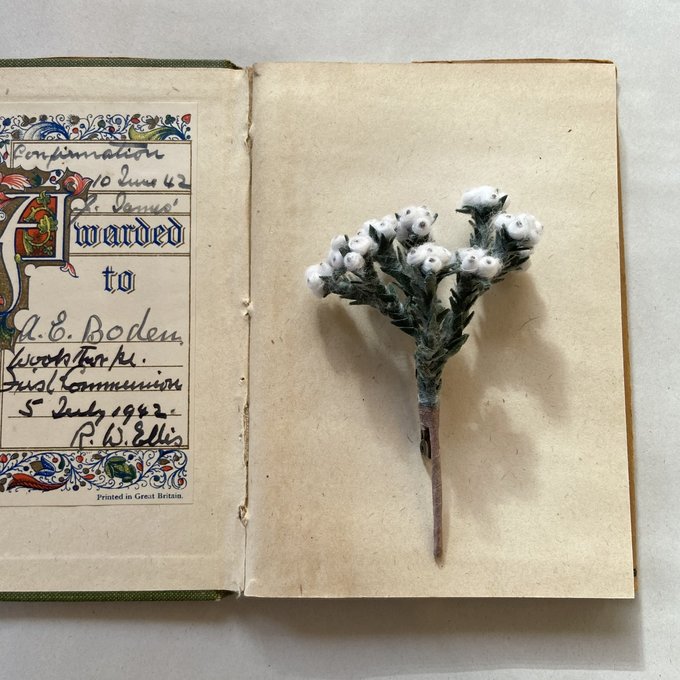 Confirmation
10 June 42
S. James'
Awarded
to
A. E. Boden
First Communion
5 July 1942.
R. W. Ellis
Printed in Great Britain.